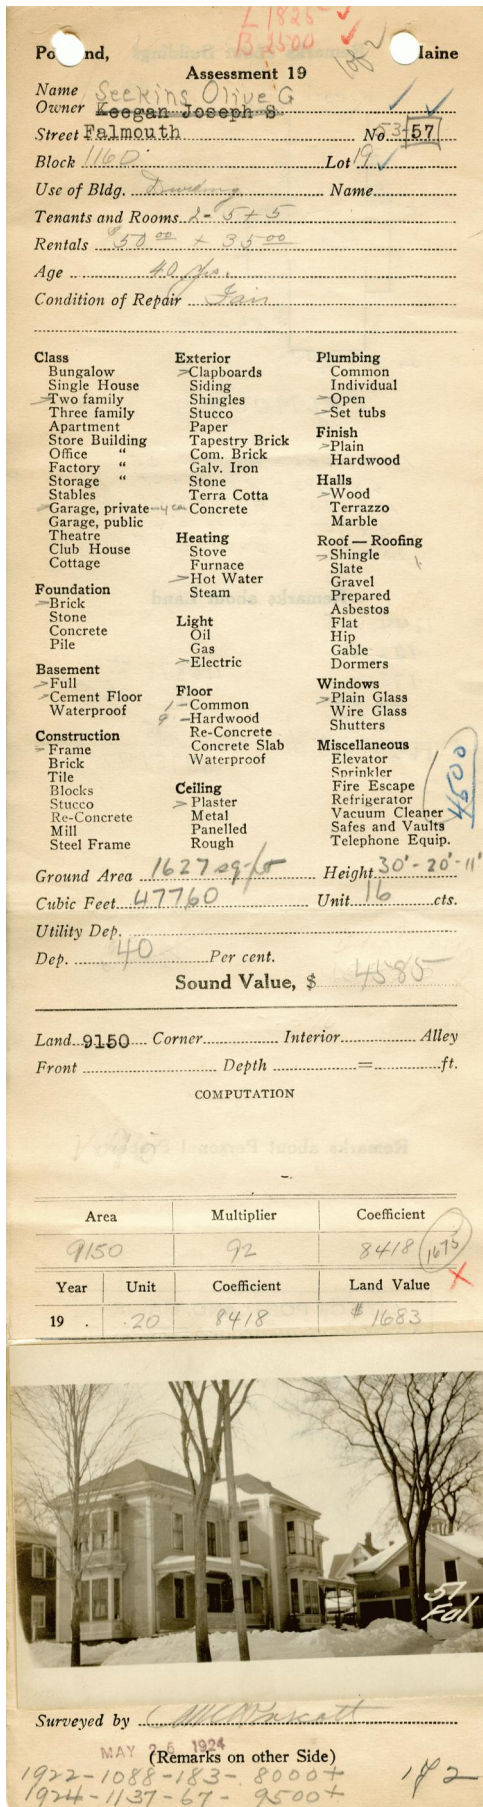 L 1825 ✓
B 2500 ✓
1 of 2
Po nd, Maine
Assessment 19
Name Seekins Olive G
Owner Keegan Joseph S
Street Falmouth No 53-57
Block 116D Lot 19
Use of Bldg. Dwelling Name
Tenants and Rooms 2- 5 + 5
Rentals $50 00 + 35 00
Age 40 yrs.
Condition of Repair Fair
Class
Bungalow
Single House
Two family
Three family
Apartment
Store Building
Office "
Factory "
Storage "
Stables
Garage, private - 4 car
Garage, public
Theatre
Club House
Cottage
Foundation
Brick
Stone
Concrete
Pile
Basement
Full
Cement Floor
Waterproof
Construction
Frame
Brick
Tile
Blocks
Stucco
Re-Concrete
Mill
Steel Frame
Exterior
Clapboards
Siding
Shingles
Stucco
Paper
Tapestry Brick
Com. Brick
Galv. Iron
Stone
Terra Cotta
Concrete
Heating
Stove
Furnace
Hot Water
Steam
Light
Oil
Gas
Electric
Floor
1 - Common
9 - Hardwood
Re-Concrete
Concrete Slab
Waterproof
Ceiling
Plaster
Metal
Panelled
Rough
Plumbing
Common
Individual
Open
Set tubs
Finish
Plain
Hardwood
Halls
Wood
Terrazzo
Marble
Roof — Roofing
Shingle
Slate
Gravel
Prepared
Asbestos
Flat
Hip
Gable
Dormers
Windows
Plain Glass
Wire Glass
Shutters
Miscellaneous
Elevator
Sprinkler
Fire Escape
Refrigerator
Vacuum Cleaner
Safes and Vaults
Telephone Equip.
Ground Area 1627 sq-ft Height 30'-20'-11'
Cubic Feet 47760 Unit 16 cts.
Utility Dep.
Dep. 40 Per cent.
Sound Value, $ 4585
Land 9150 Corner Interior Alley
Front Depth = ft.
COMPUTATION
Area Multiplier Coefficient
9150 92 8418 1675
Year Unit Coefficient Land Value
19 . .20 8418 $1683
57
Fal
Surveyed by
MAY 26 1924
(Remarks on other Side)
1922-1088-183- 8000+
1924-1137-67- 9500+